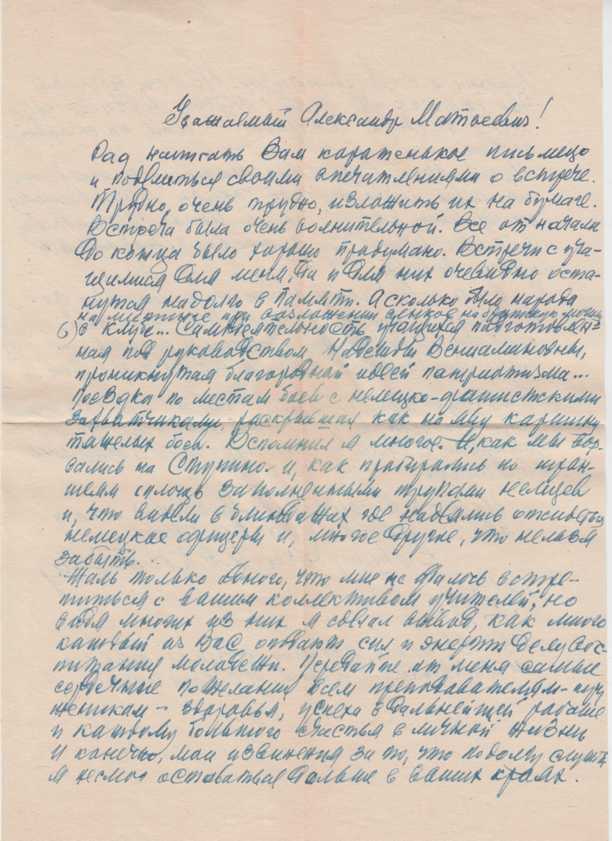 Уважаемый Александр Матвеевич!
Рад написать Вам коротенькое письмецо
и поделиться своими впечатлениями о встрече.
Трудно, очень трудно, изложить их на бумаге.
Встреча была очень волнительной. Все от начала
до конца было хорошо продумано. Встречи с уча-
щимися для меня, да и для них очевидно оста-
нутся надолго в памяти. А сколько было народа
на митинге при возложении венков на братскую могилу
в клубе... Самодеятельность учащихся подготовлен-
ная под руководством Надежды Вениаминовны,
проникнутая благородной идеей патриотизма...
Поездка по местам боев с немецко-фашистскими
захватчиками раскрывшая как на яву картину
тяжелых боев. Вспомнил я многое. И, как мы
на Ступино и, как пробирались по тран-
шеям сплошь заполненными трупами немцев
и, что видели в блиндажах где надеялись отсидеться
немецкие офицеры и, многое другое, что нельзя
забыть...
Жаль только одного, что мне не удалось встре-
титься с вашим коллективом учителей, но
видя многих из них я сделал вывод, как много
каждый из Вас отдают сил и энергии делу вос-
питания молодежи. Передайте от меня самые
сердечные пожелания всем преподавателям-
- здоровья, успеха в дальнейшей работе
и каждому большого счастья в личной жизни
и конечно, мои извинения за то, что по долгу службы
я не смог оставаться дольше в ваших краях.